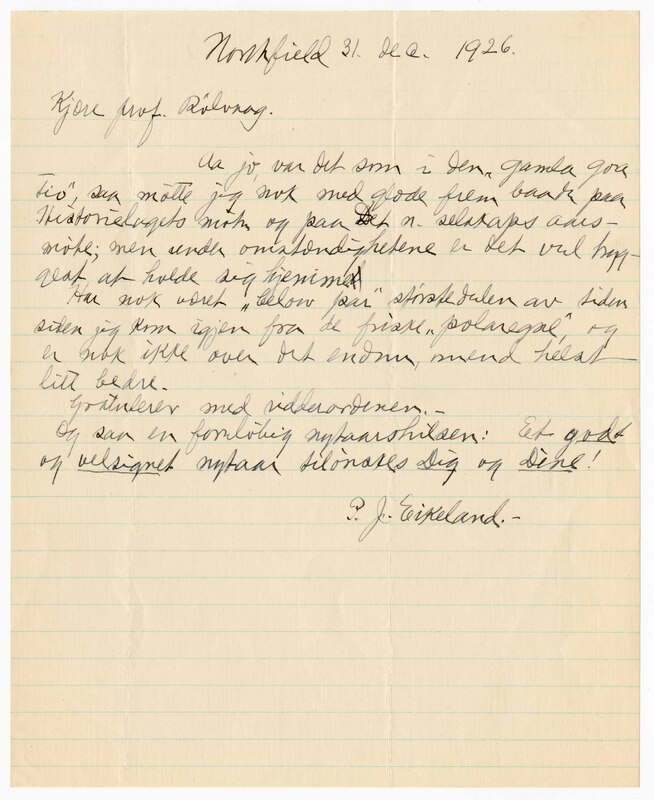 Northfield 31. dec. 1926.
Kjære prof. Rölvaag.
Aa jo, var det som i den „gamla goa
tio", saa møtte jeg nok med glæde frem baade paa
Historielagets møte og paa Det n. selskaps aars-
møte; men under omstændighetene er det vel tryg-
gest at holde sig hjemme
Har nok været „below par" størstedelen av tiden
siden jeg kom igjen fra de friske „polaregne", og
er nok ikke over det endnu, men helst
litt bedre.
Gratulerer med ridderordenen.–
Og saa en foreløbig nytaarshilsen: Et godt
og velsignet nytaar tilønskes Dig og Dine!
P. J. Eikeland.–